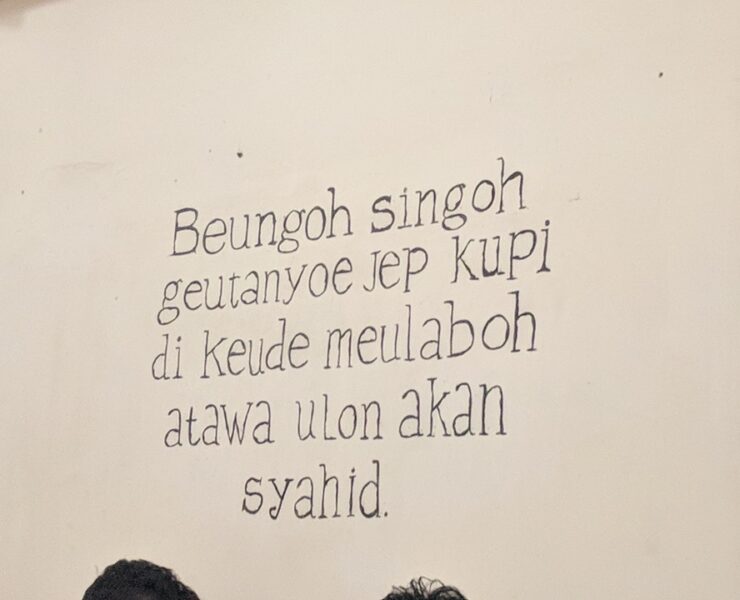 Beungoh singoh
geutanyoe Jep kupi
di keude meulaboh
atawa ulon akan
syahid.